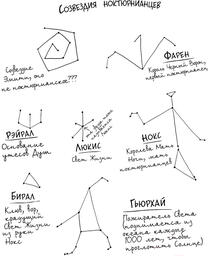 Созвездия ноктюрнианцев
Созвездие
Змеит, это
не ноктюрнианское???
Фарен
Король Чёрный Ворон,
первый ноктюрнианец
Рэйрал
Основание
утёсов Души
Люкис
Свет Жизни
Нокс
Королева Мать
Ночь, мать
ноктюрнианцев
Бирал
Клюв, вор,
крадущий
Свет Жизни
из руки
Нокс
Тьюрхай
Пожиратель Света
(поднимается из
океана каждую
1000 лет, чтобы
проглотить Солнце)